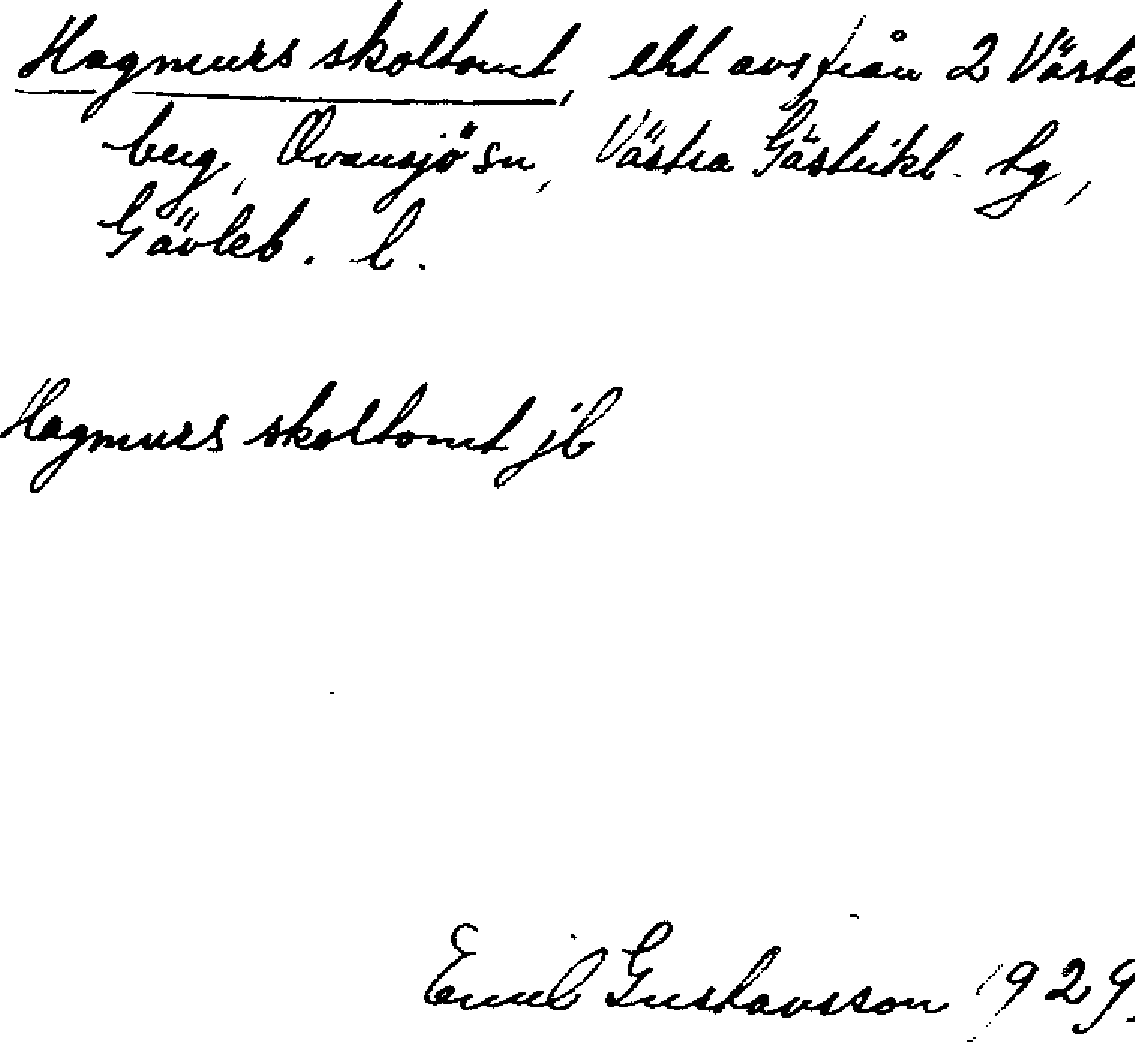 Hagmurs skoltomt, eht avs från 2 Väste
berg, Ovansjö sn, Västra Gästrikl. tg,
Gävleb. l.
Hagmurs skoltomt jb
Emil Gustavsson 1929.